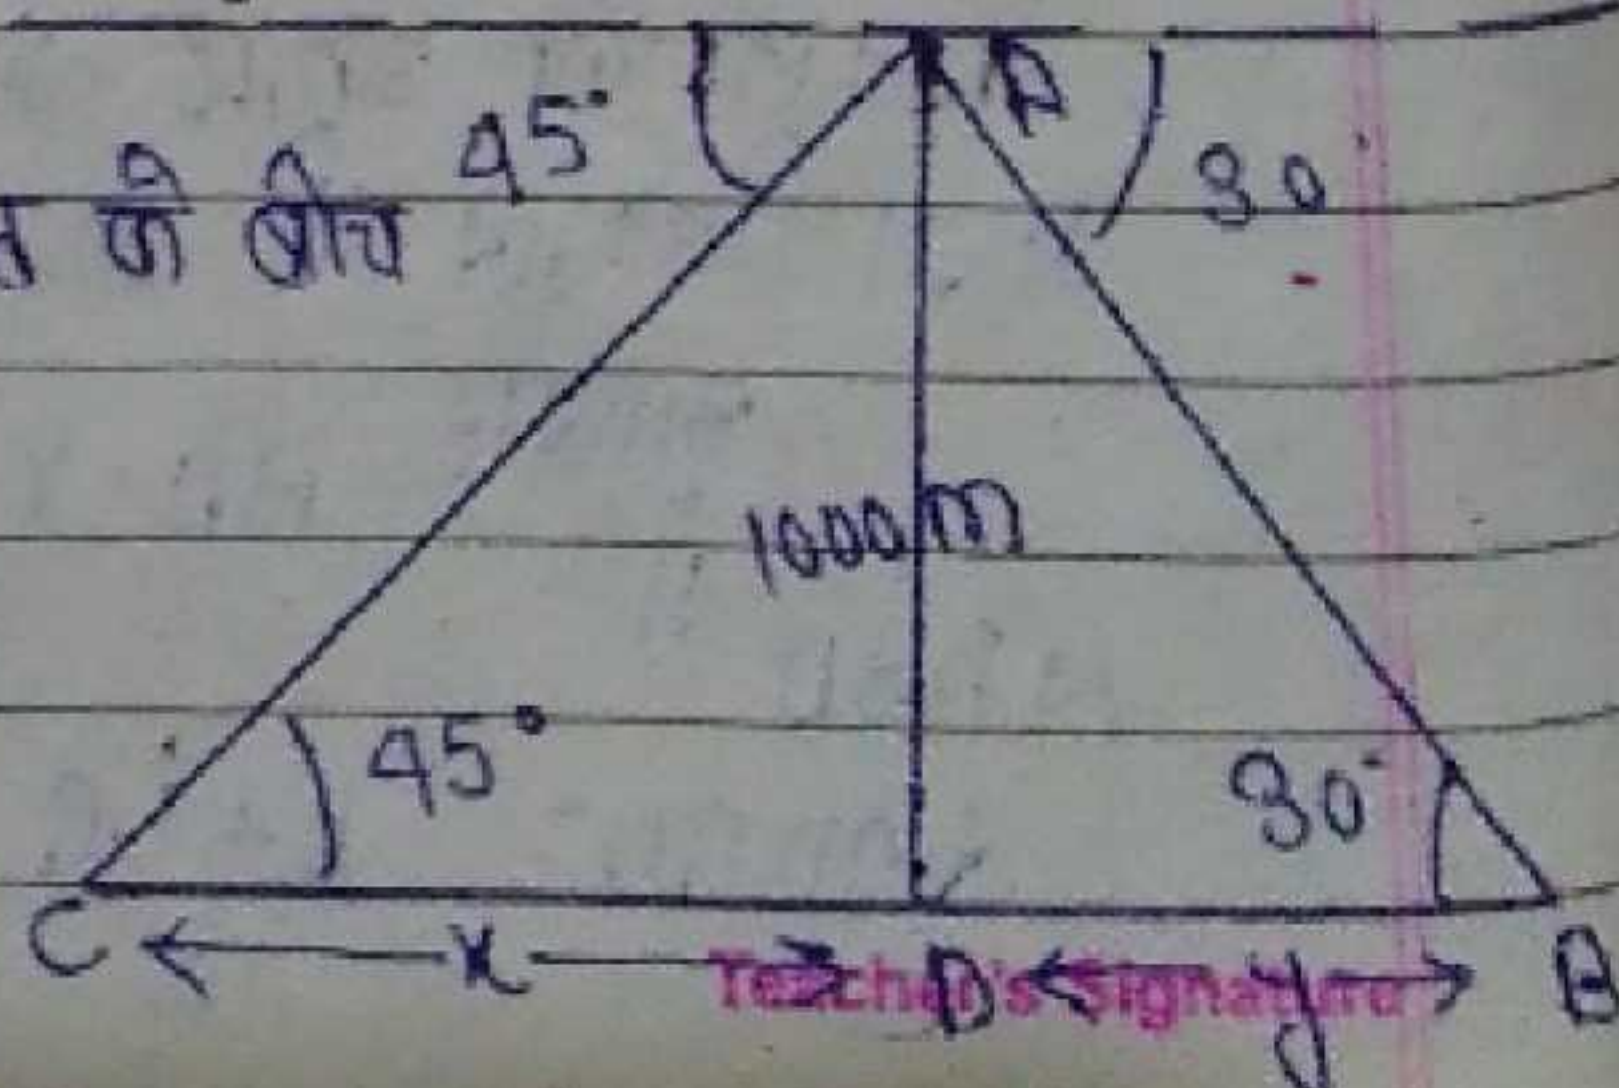 A
45° 30
के बीच
1000m
45° 30°
C x D y B
Teacher's Signature